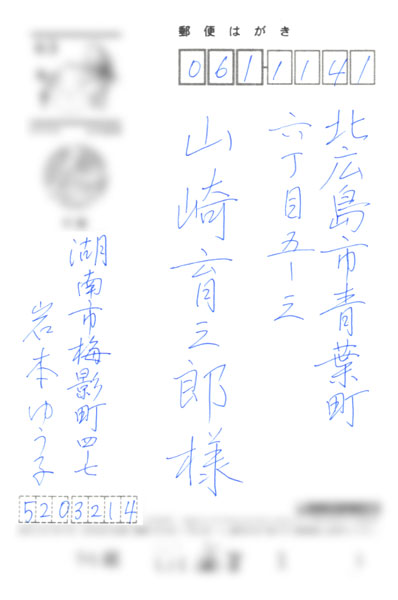 郵便はがき
061-1141
北広島市青葉町
六丁目五-三
山崎育三郎様
湖南市梅影町四七
岩本ゆう子
5203214